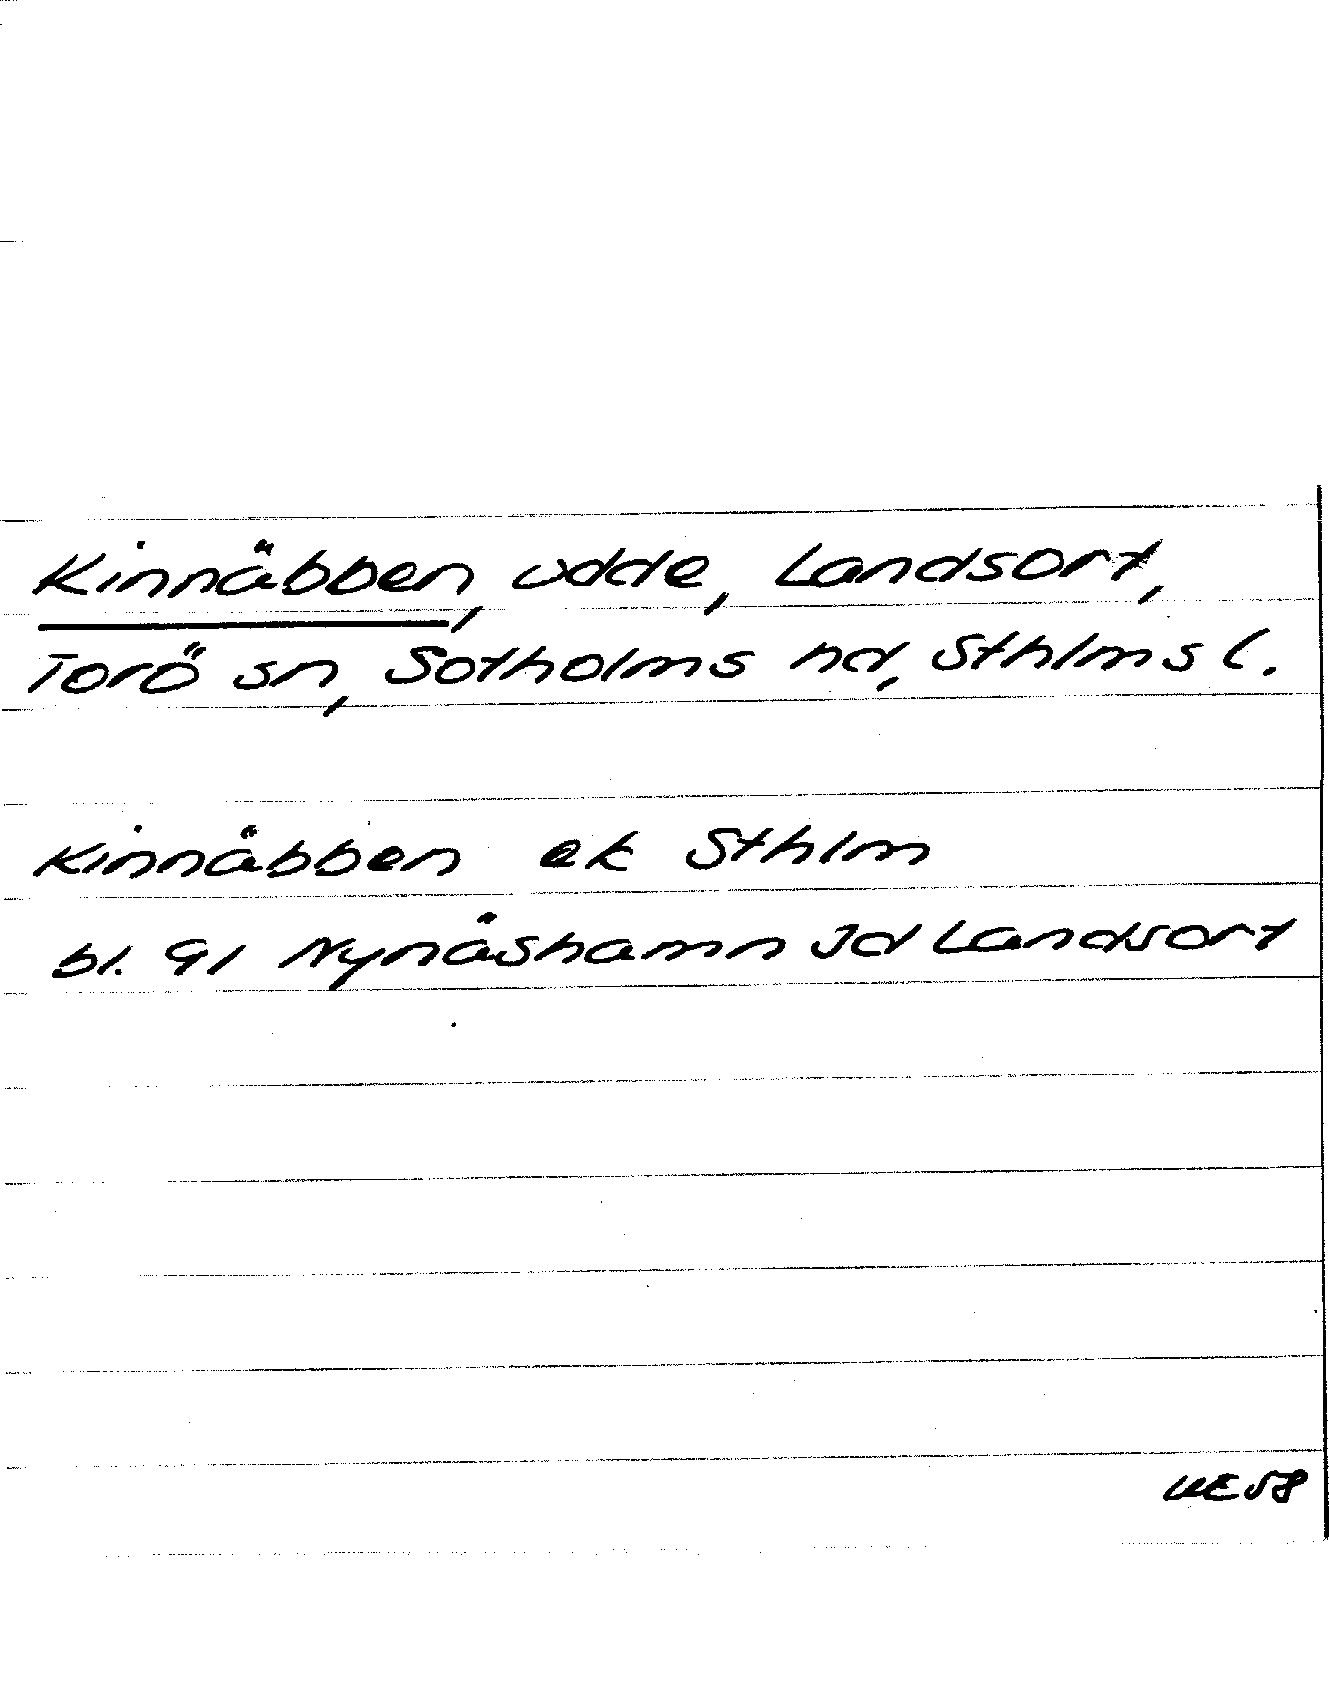 Kinnäbben, udde, Landsort,
Torö sn, Sotholms hd, Sthlms l.
Kinnäbben ek Sthlm
bl. 91 Nynäshamn Jd Landsort
UE 58